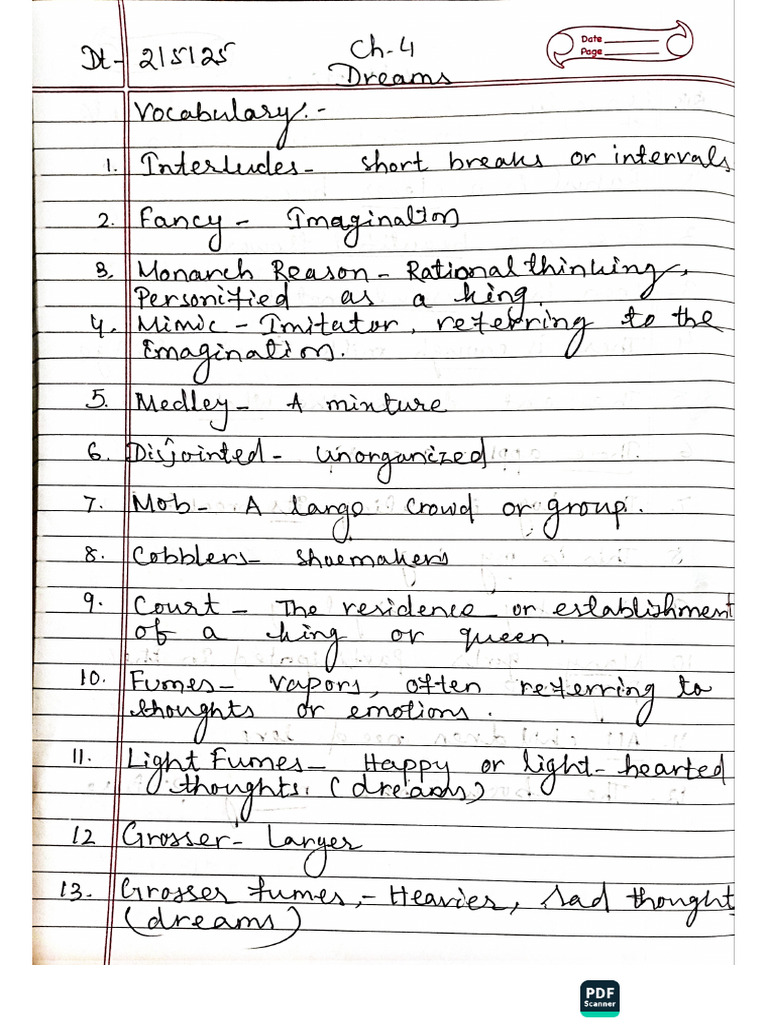 Dt- 2/5/25
Ch-4
Date
Page
Dreams
Vocabulary:-
1. Interludes- short breaks or intervals
2. Fancy- Imagination
3. Monarch Reason- Rational thinking,
Personified as a king.
4. Mimic- Imitator, referring to the
Imagination.
5. Medley- A mixture
6. Disjointed- unorganized
7. Mob- A large crowd or group.
8. Cobblers- shoemakers
9. Court- The residence or establishment
of a king or queen.
10. Fumes- Vapors, often referring to
thoughts or emotions.
11. Light Fumes- Happy or light-hearted
thoughts. (dreams)
12 Grosser- Larger
13. Grosser fumes,- Heavies, sad thought
(dreams)
PDF
Scanner